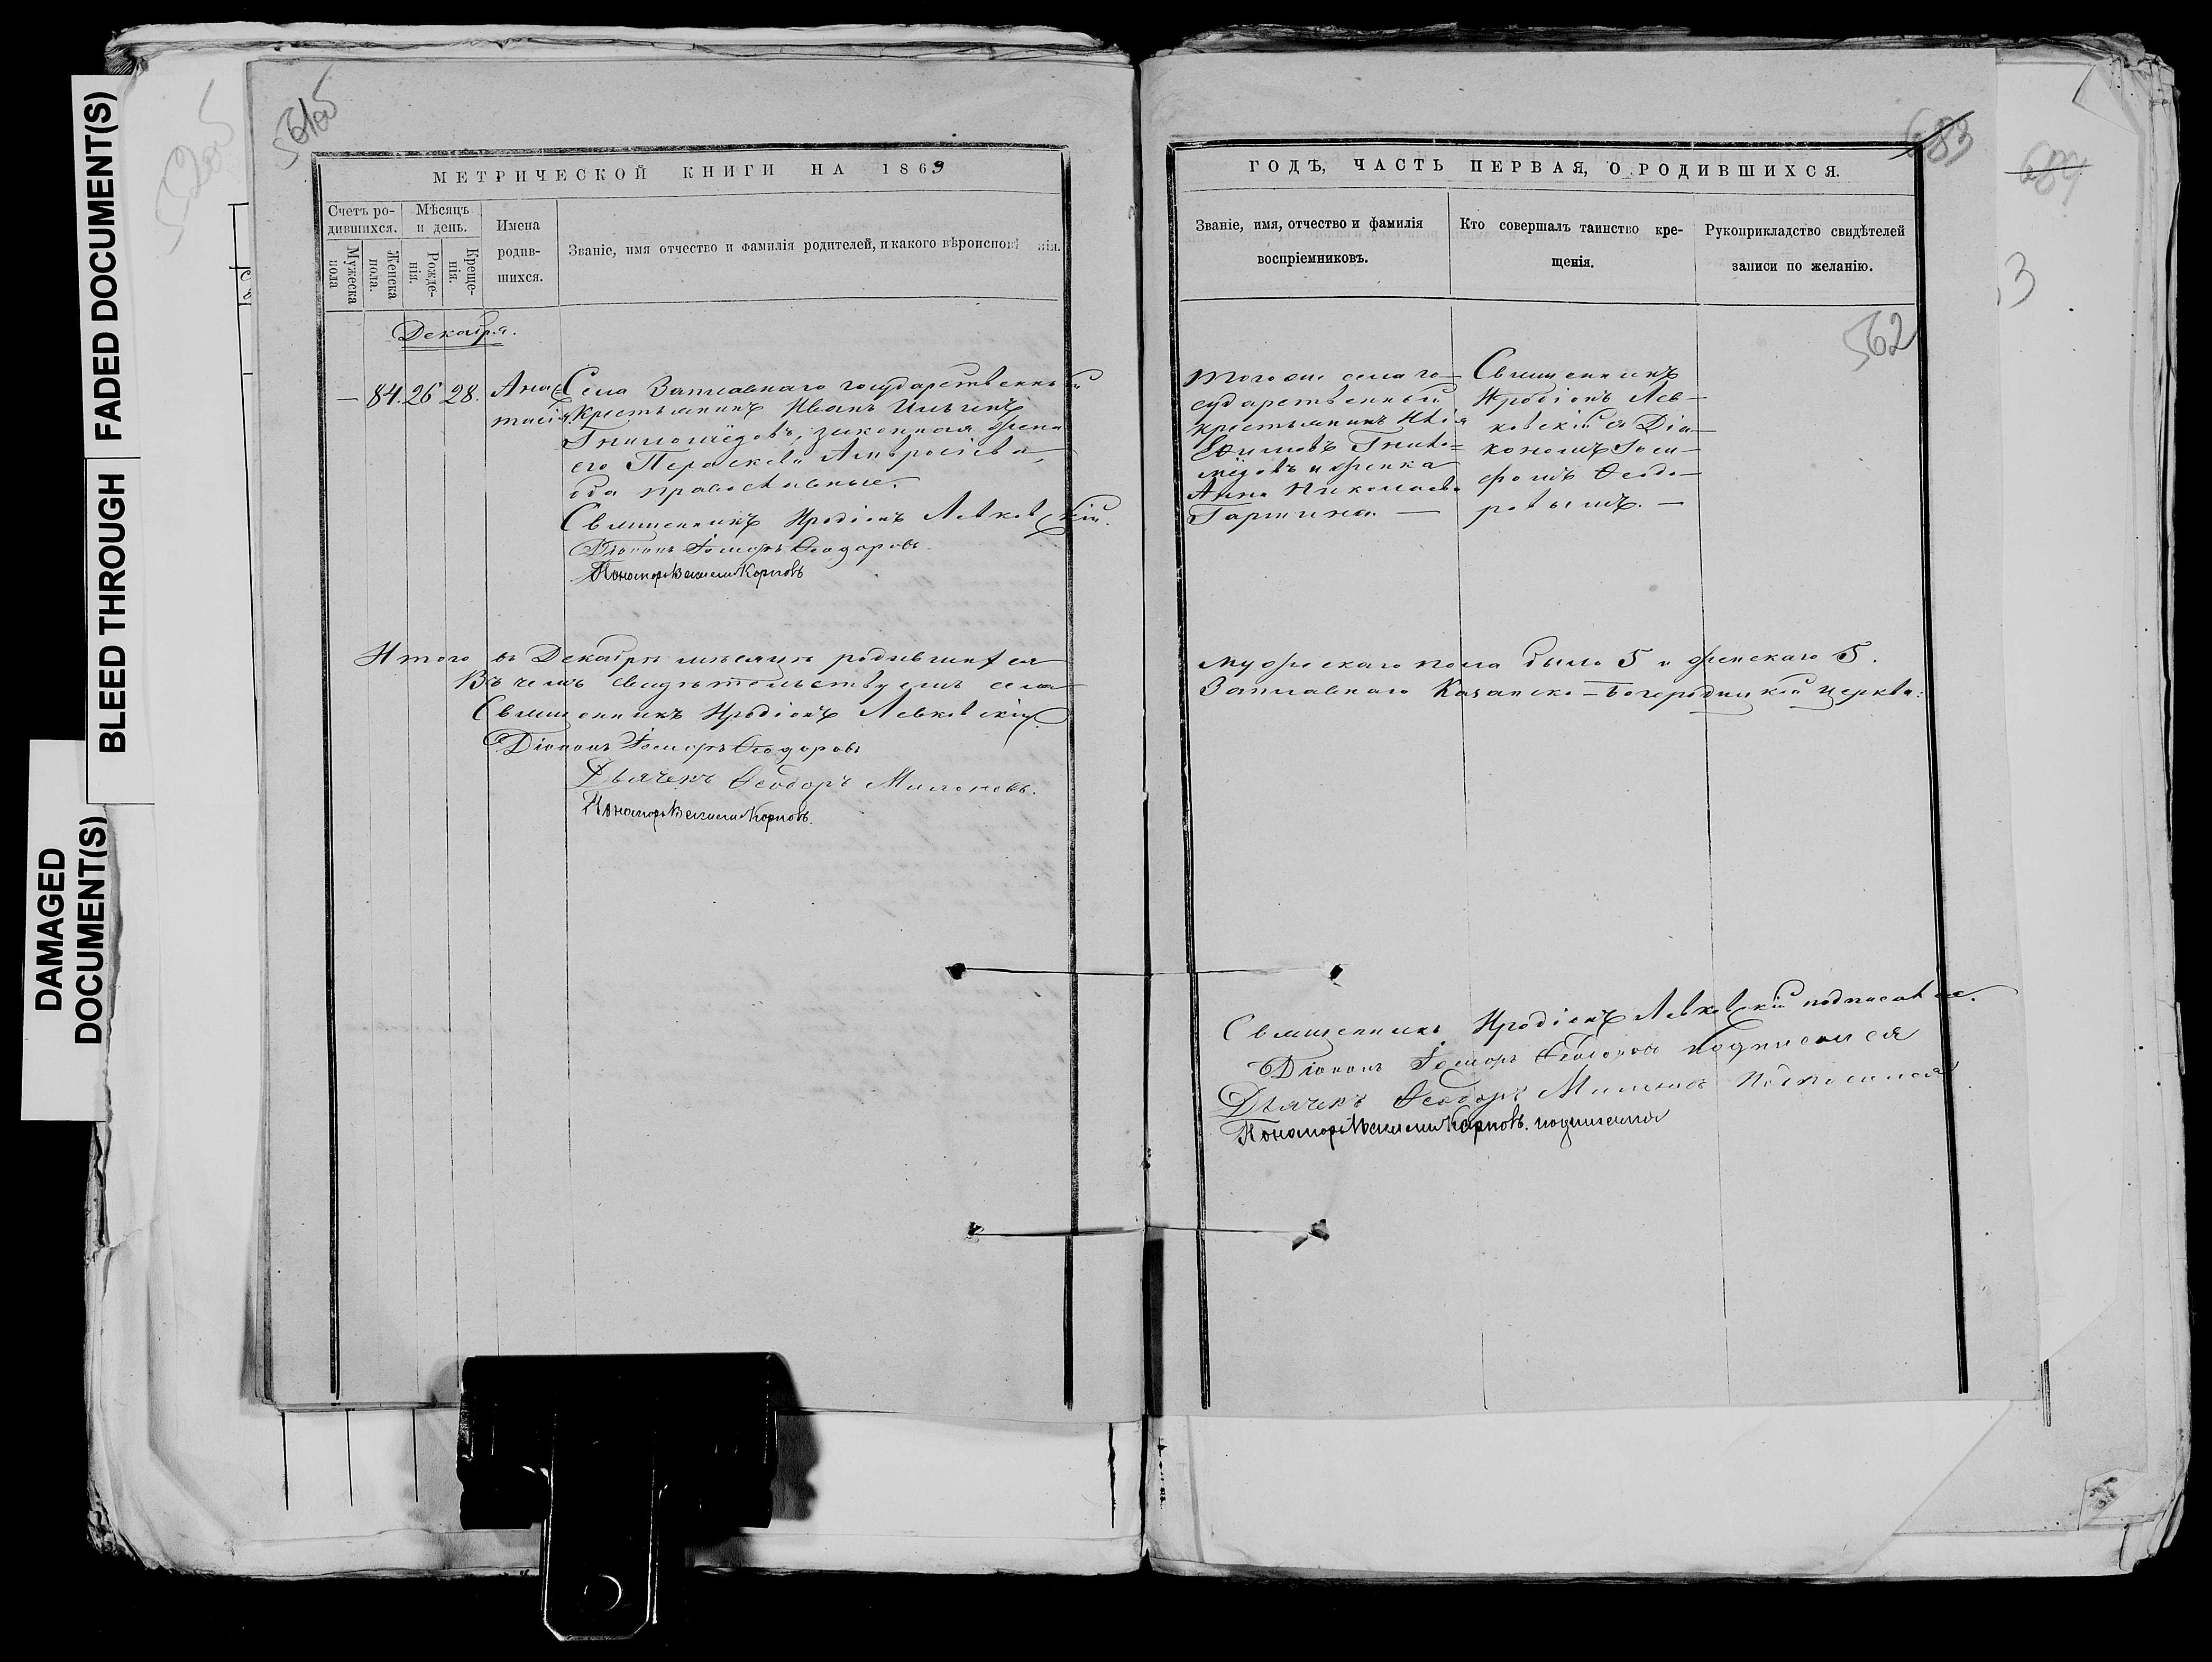 FADED DOCUMENT(S)
BLEED THROUGH
DAMAGED
DOCUMENT(S)
МЕТРИЧЕСКОЙ КНИГИ НА 1869
Счетъ ро-
дившихся.
Мужеска
пола
Женска
пола.
Мѣсяцъ
и день.
Рожде-
нія.
Креще-
нія.
Имена
родив-
шихся.
Званіе, имя отчество и фамилія родителей, и какого вѣроисповѣ нія.
Декабря.
— 84. 26 28.
Анас
тасія
Села Заплавнаго государственный
крестьянинъ Иванъ Ильинъ
Гниломёдовъ, законная жена
его Параскева Амвросіева,
оба православные.
Священникъ Иродіонъ Левковскій.
Діаконъ Іосифъ Ѳеодоровъ
Пономарь Василій Карповъ
Итого въ Декабрѣ мѣсяцѣ родившихся
Въ чемъ свидѣтельствуемъ села
Священникъ Иродіонъ Левковскій
Діаконъ Іосифъ Ѳеодоровъ
Дьячекъ Ѳеодоръ
Пономарь Василій Карповъ.
683
684
562
ГОДѢ, ЧАСТЬ ПЕРВАЯ, О РОДИВШИХСЯ.
Званіе, имя, отчество и фамилія
воспріемниковъ.
Кто совершалъ таинство кре-
щенія.
Рукоприкладство свидѣтелей
записи по желанію.
Того же села го-
сударственный
крестьянинъ
Гнило-
мёдовъ и
Анна Николаева
Гаршина. —
Священникъ
Иродіонъ Лев-
ковскій съ Діа-
кономъ Іоси-
фомъ Ѳеодо-
ровымъ. —
мужескаго пола было 5 и женскаго 5.
Заплавнаго Казанско-Богородицкой церкви:
Священникъ Иродіонъ Левковскій подписался.
Діаконъ Іосифъ Ѳеодоровъ подписался
Дьячекъ Ѳеодоръ подписался
Пономарь Василій Карповъ. подписался